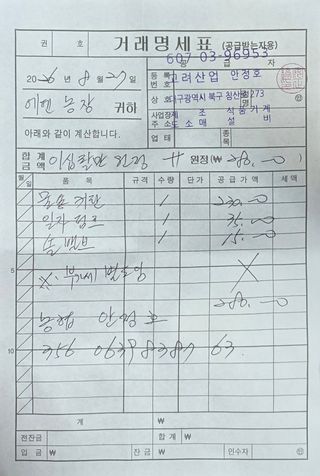 권 호
거래명세표 (공급받는자용)
607-03-96953
공 급 자
2026년 8월 27일
등록번호
에덴 농장 귀하
상호 고려산업 안정호
아래와 같이 계산합니다.
사업장주소 대구광역시 북구 칠산동 273
업태 제조 도소매 종목 식품기계 설비
합계금액 이십팔만 원정 원정(₩ 280,000)
월/일 품목 규격 수량 단가 공급가액 세액
1 230,000
일자 펌프 1 35,000
볼 밸브 1 15,000
5
※. 부가세 별도임
280,000
농협 안정호
10 356 0639 8387 63
계 ₩
전잔금 합계 ₩
입금 ₩ 잔금 ₩ 인수자 ㊞